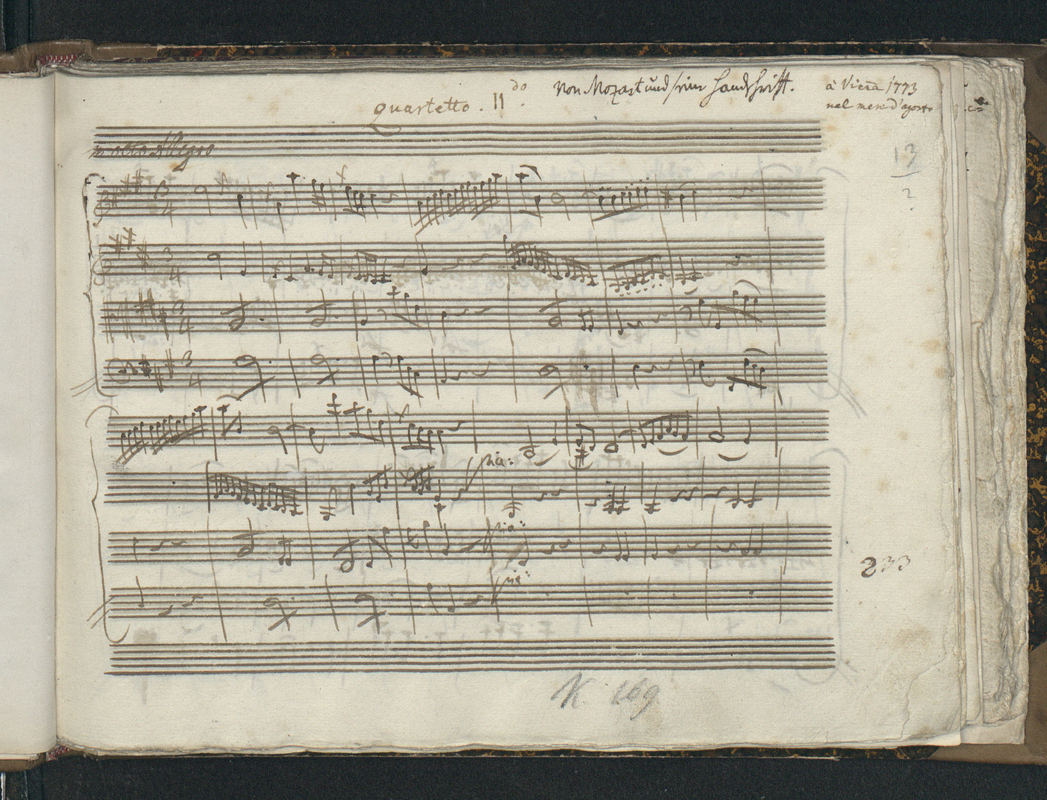 quartetto. II do.
Von Mozart und seine Handschrift.
à Vienna 1773
nel mese d'agosto
13
2
molto Allegro
3
4
3
4
3
4
3
4
pia:
pia:
pia:
233
K. 169